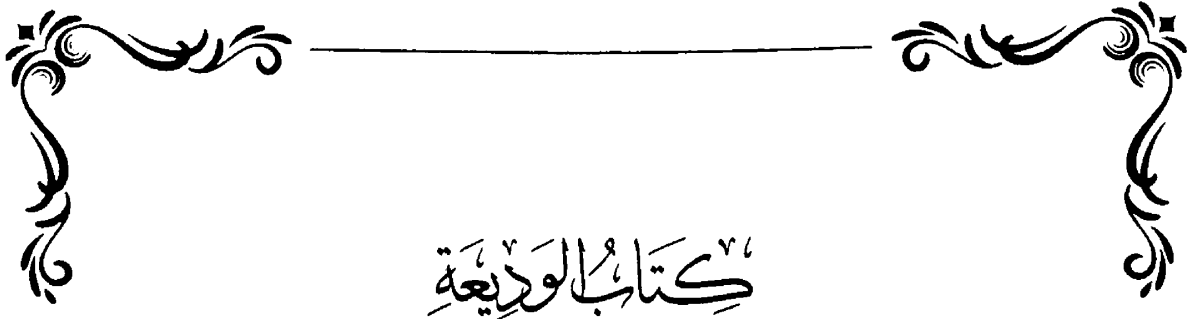 كِتَابُ الوَدِيعَةِ